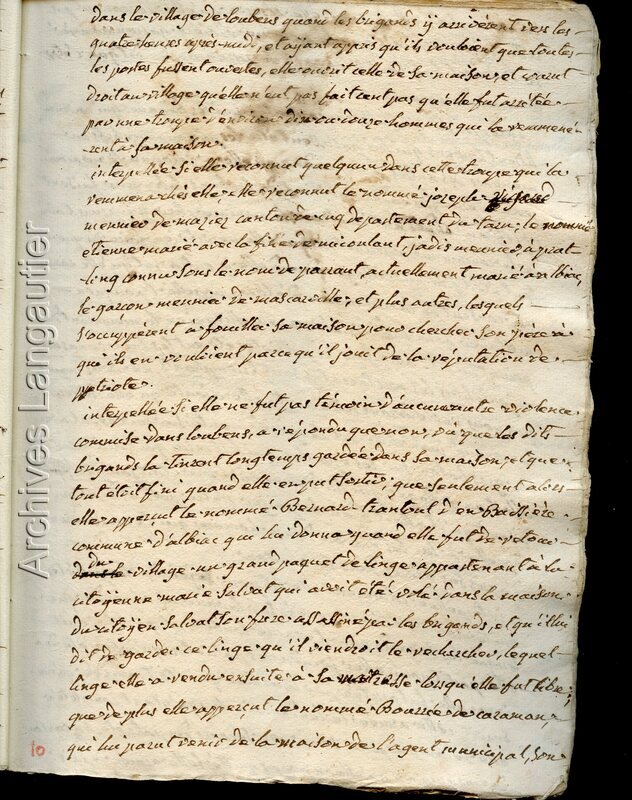 dans le village de loubens quand les brigands y arrivèrent vers les
quatre heures après midi, et ayant appris qu'ils vouloient que toutes
les portes fussent ouvertes, elle ouvrit celle de sa maison, et courut
droit au village qu'elle n'eut pas fait cent pas qu'elle fut arretée
par une troupe d'environ dix ou douze hommes qui la remmené-
rent à sa maison.
interpellée si elle reconnut quelqu'un dans cette troupe qui la
remmena chés elle, elle reconnut le nommé joseph
meunier de mazies canton de cuq departement du tarn, le nommé
etienne marié avec la fille de micoulaut, jadis meunier, à prat-
linq connu sous le nom de parraut, actuellement marié a albiac,
le garçon meunier de mascarville, et plus autres, lesquels
s'occuppérent à fouiller sa maison pour chercher son pére à
qui ils en vouloient parce qu'il jouit de la réputation de
patriote.
interpellée si elle ne fut pas témoin d'aucune autre violence
commise dans loubens, a répondu que non, vû que les dits
brigands la tinrent longtemps gardée dans sa maison, et que
tout étoit fini quand elle en put sortir, que seulement alors
elle apperçut le nommé Bernard trantoul d'en Bassiére
commune d'albiac qui lui donna quand elle fut de retour
dans le du village un grand paquet de linge appartenant à la
citoyenne marie salvat qui avoit été volé dans la maison
du citoyen salvat son frere assassiné par les brigands, et qu'il lui
dit de garder ce linge qu'il viendroit le rechercher, lequel
linge elle a rendu ensuite à sa maitresse lorsqu'elle fut libre;
que de plus elle apperçut le nommé Bourrée de caraman,
qui lui parut venir de la maison de l'agent municipal, son
10
Archives Langautier